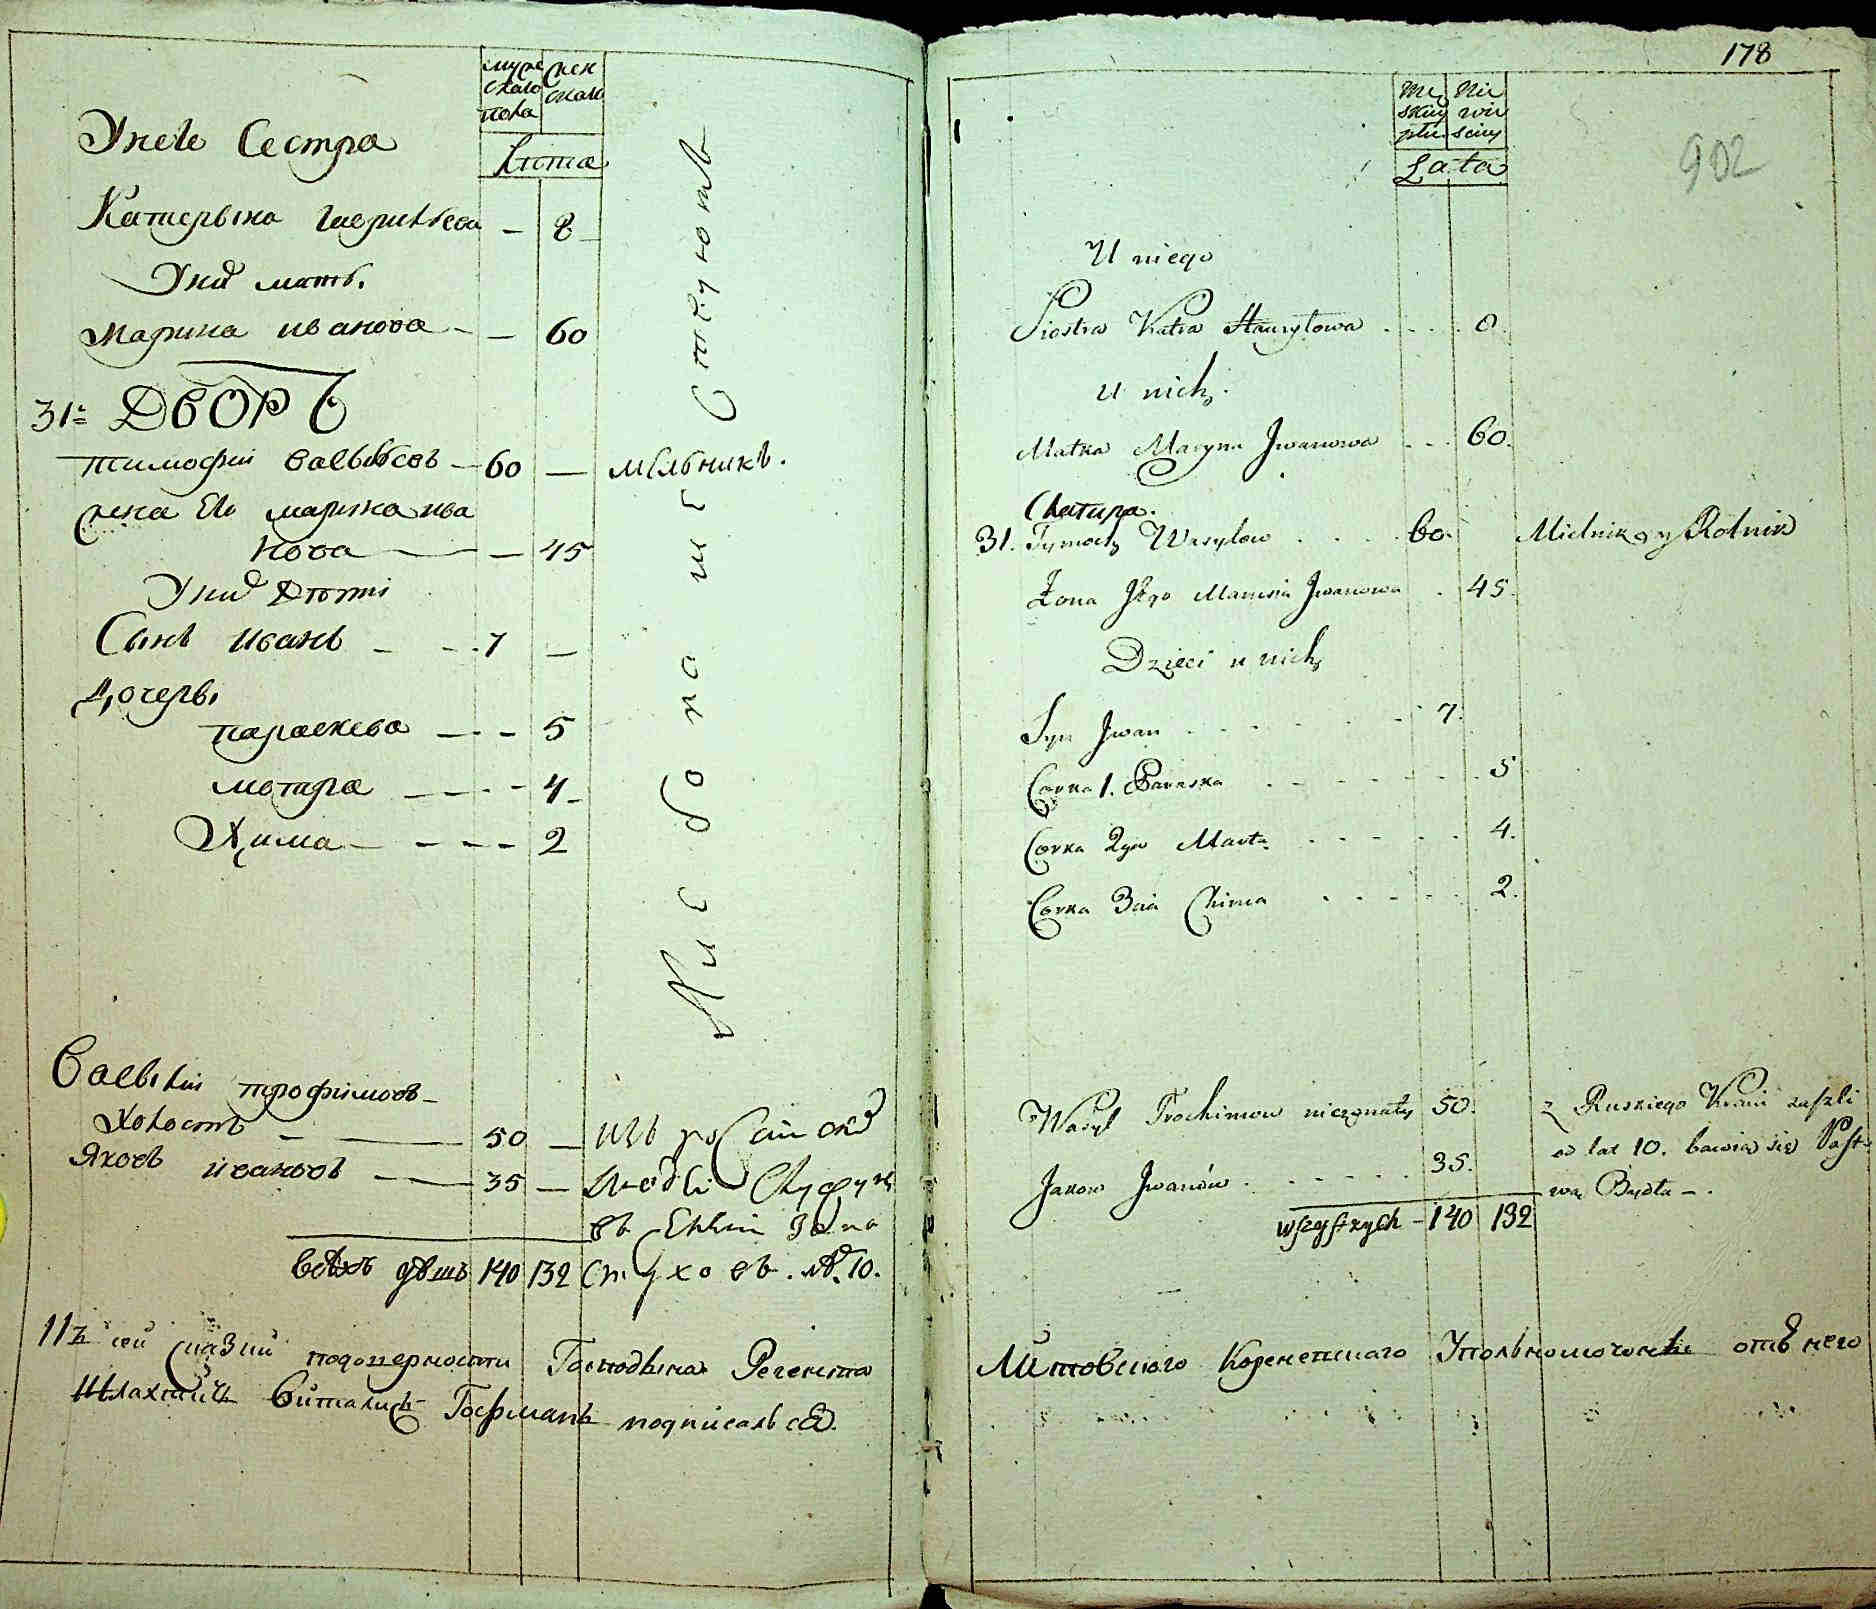 муже
скаго
пола
жен
скаго
Лѣта
Унего Сестра
Катерына Гаврилова — 8
Уних мать.
Марина иванова — 60
31: ДВОРЪ
Тимофѣй васылѣевъ — 60 — мельникъ.
жена Его марина ива
нова — 45
Уних Дѣти
Сынъ иванъ — 7 —
Дочеры
параскева — 5
мотра — 4
Хима — 2
Хлебопашествуютъ
Васылий трофимовъ
Холостъ — 50 —
Яковъ ивановъ — 35 —
всѣхъ душъ 140 132
въ
лѣтъ 10.
сей подоверности Господина Регента
Шляхтичъ Гофманъ подписалься
178
902
Mę
skiey
płci
Nie
wie
sciey
Lata
U niego
Siostra Katra Hawryłowa . . . . 8.
U nich.
Matka Maryna Jwanowa . . . 60.
Chałupa.
31. Tymoch Wasylow . . . . 60. Mielnik y Rolnik
Żona Jego Marusia Jwanowa . 45.
Dzieci u nich
Syn Jwan . . . . . . 7.
Corka 1. Paraska . . . . . . . 5
Corka 2ga Marta . . . . . . 4.
Corka 3cia Chima . . . . . 2.
Wasyl Trochimow nieżonaty 50. z Ruskiego Kraiu zaszli
od lat 10. bawią się Past
Jakow Jwanów . . . . . . 35. wą Bydła — .
wszystkich — 140 132
Литовского Упольномоченъ отъ него